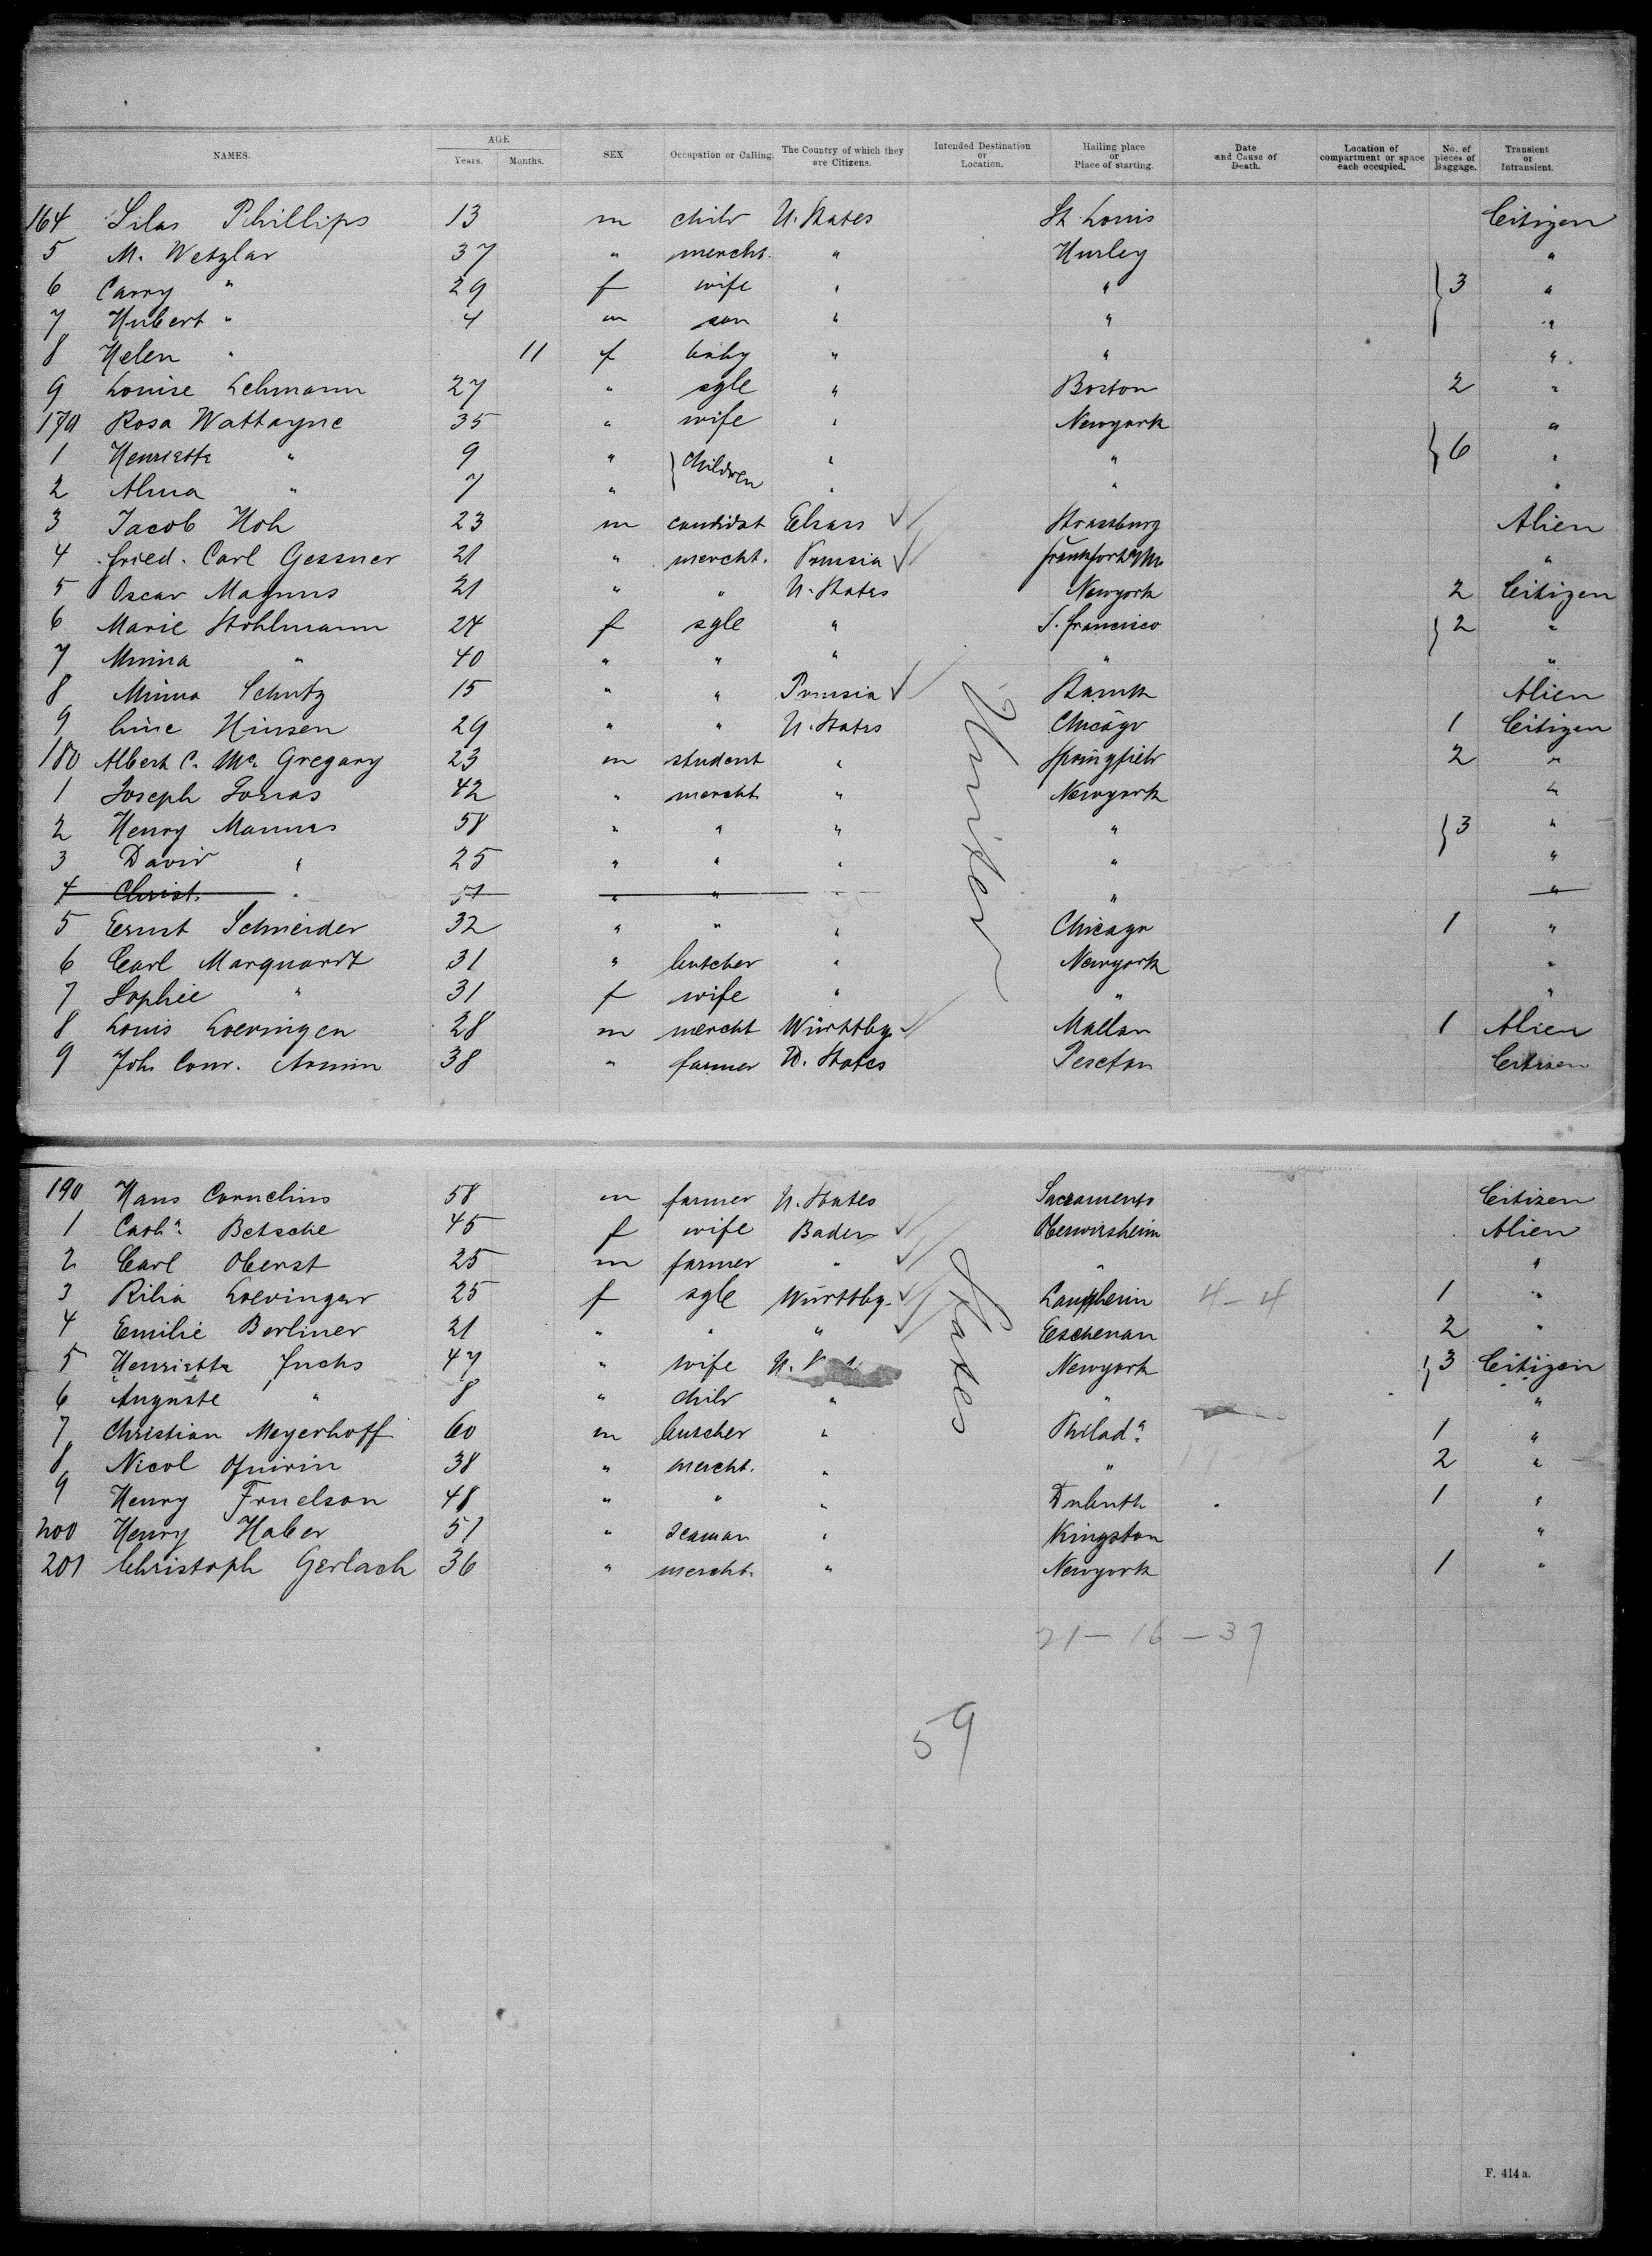 NAMES. AGE Years. Months. SEX Occupation or Calling. The Country of which they are Citizens. Intended Destination or Location. Hailing place or Place of starting. Date and Cause of Death. Location of compartment or space each occupied. No. of pieces of Baggage. Transient or Intransient.
164 Silas Phillips 13 m child U. States St. Louis Citizen
5 M. Wetzlar 37 " mercht. " Hurley "
6 Carry " 29 f wife " " } 3 "
7 Hubert " 4 m son " " "
8 Helen " 11 f baby " " "
9 Louise Lehmann 27 " sgle " Boston 2 "
170 Rosa Wattayne 35 " wife " Newyork "
1 Henriette " 9 " } children " " } 6 "
2 Alma " 7 " " " "
3 Jacob Hoh 23 m candidat Elsass Strassburg Alien
4 Fried. Carl Gessner 21 " mercht. Prussia Frankfort a/M. "
5 Oscar Magnus 21 " " U. States Newyork 2 Citizen
6 Marie Stohlmann 24 f sgle " S. Francisco } 2 "
7 Minna " 40 " " " " "
8 Minna Schutz 15 " " Prussia Alien
9 Line Hinsen 29 " " U. States Chicago 1 Citizen
180 Albert C. Mc. Gregary 23 m student " Springfield 2 "
1 Joseph 42 " mercht " Newyork "
2 Henry Mannes 58 " " " " } 3 "
3 David " 25 " " " " "
4 Christ. " 51 " " " " "
5 Ernst Schneider 32 " " " Chicago 1 "
6 Carl Marquardt 31 " butcher " Newyork "
7 Sophie " 31 f wife " " "
8 Louis Loevingen 28 m mercht Württbg. Mallan 1 Alien
9 Joh. Conr. Armin 38 " farmer U. States Citizen
United
190 Hans Cornelius 58 m farmer U. States Sacramento Citizen
1 Cath.a Betsche 45 f wife Baden Oberwisheim Alien
2 Carl Oberst 25 m farmer " " "
3 Rilia Loevinger 25 f sgle Württbg. Laupheim 4-4 1 "
4 Emilie Berliner 21 " " " Eschenau 2 "
5 Henriette Fuchs 47 " wife U. Newyork } 3 Citizen
6 Auguste " 8 " child " " "
7 Christian Meyerhoff 60 m butcher " Philad.a 1 "
8 Nicol Quirin 38 " mercht. " " 2 "
9 Henry Fruelson 48 " " " Duluth 1 "
200 Henry Haber 51 " seaman " Kingston "
201 Christoph Gerlach 36 " mercht. " Newyork 1 "
States
21-16-37
59
F. 414 a.